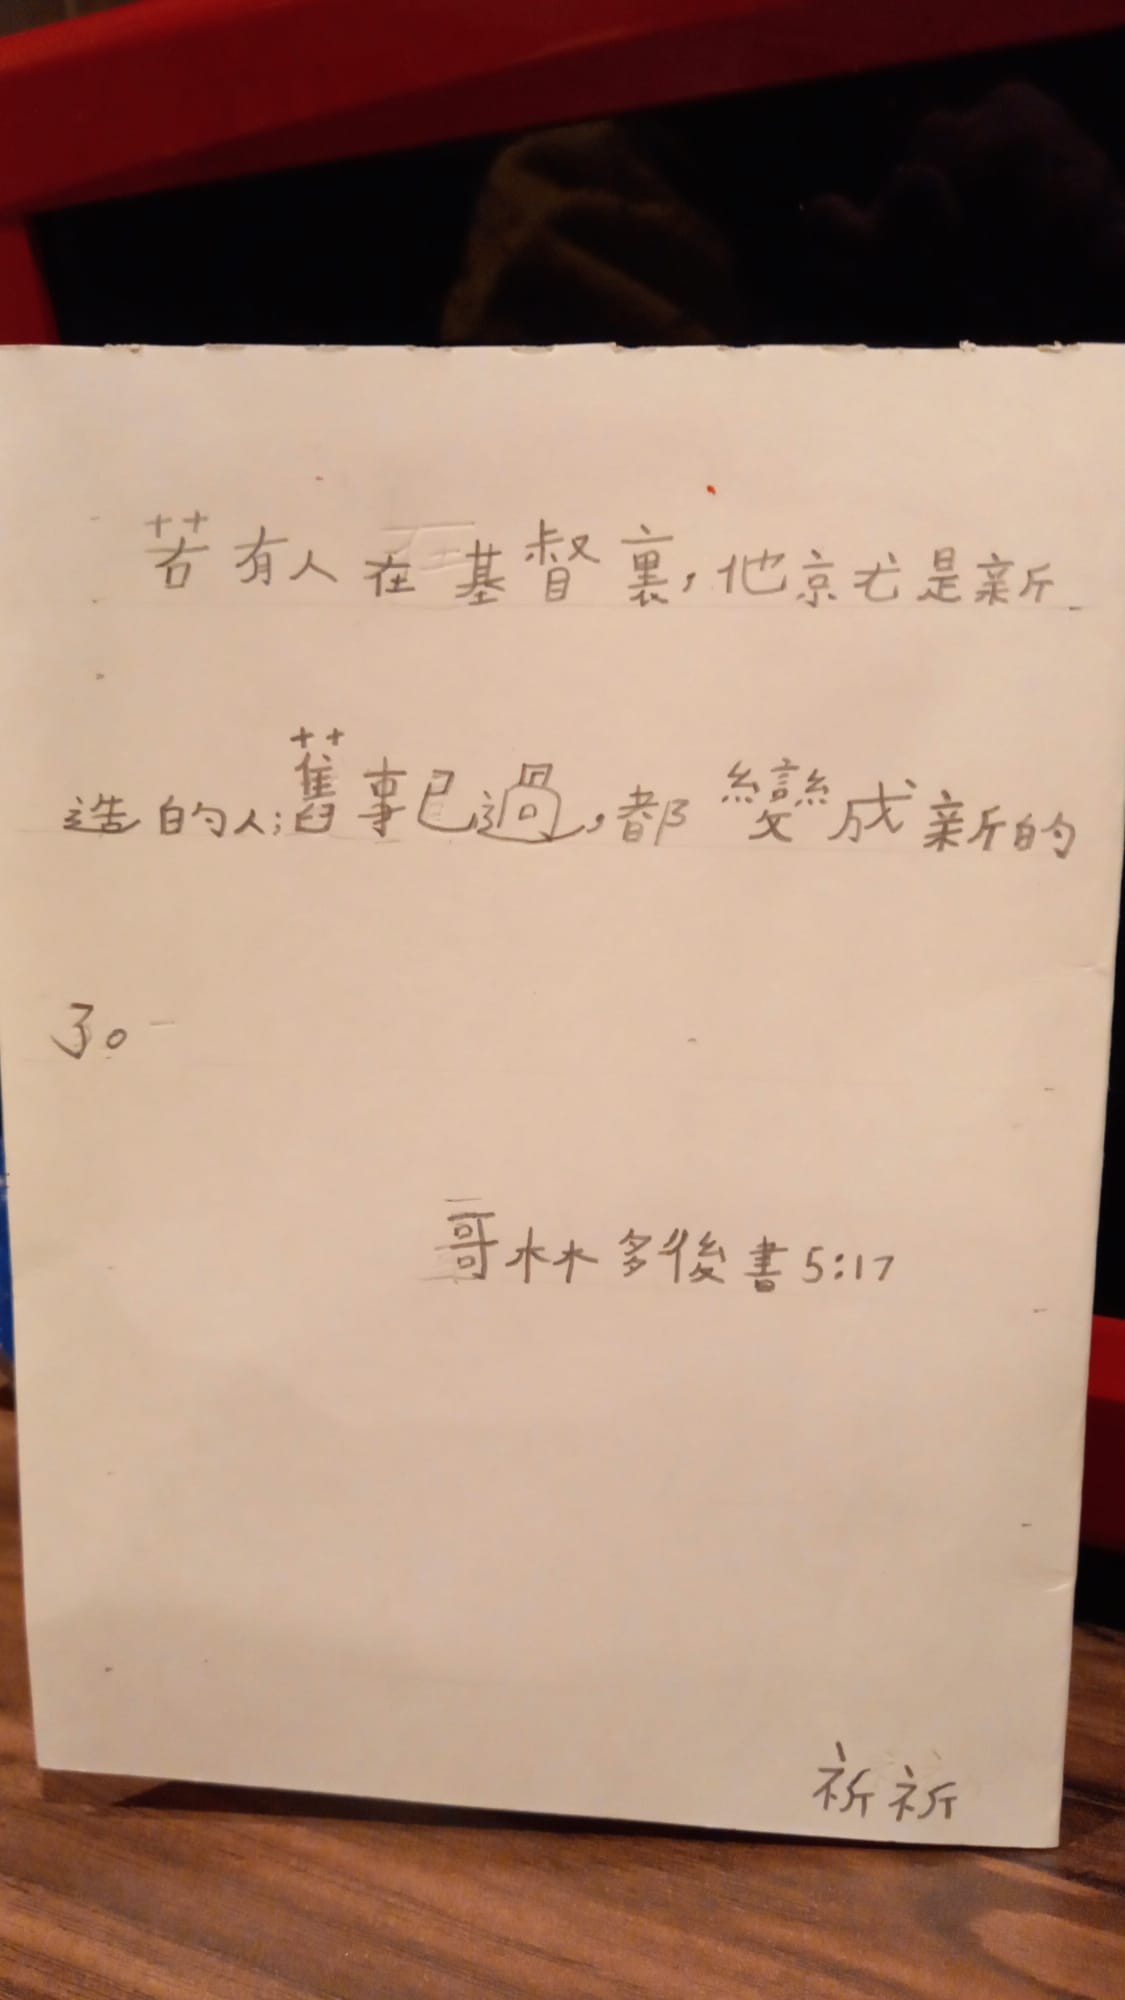 若有人在基督裏，他就是新
造的人；舊事已過，都變成新的
了。
哥林多後書5:17
祈祈